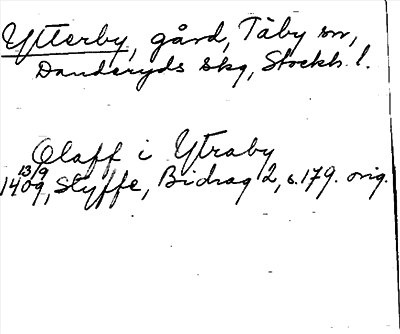 Ytterby, gård, Täby sn,
Danderyds skg, Stockh. l.
Olaff i Ytraby
13/9
1409, Styffe, Bidrag 2, s. 179. orig.